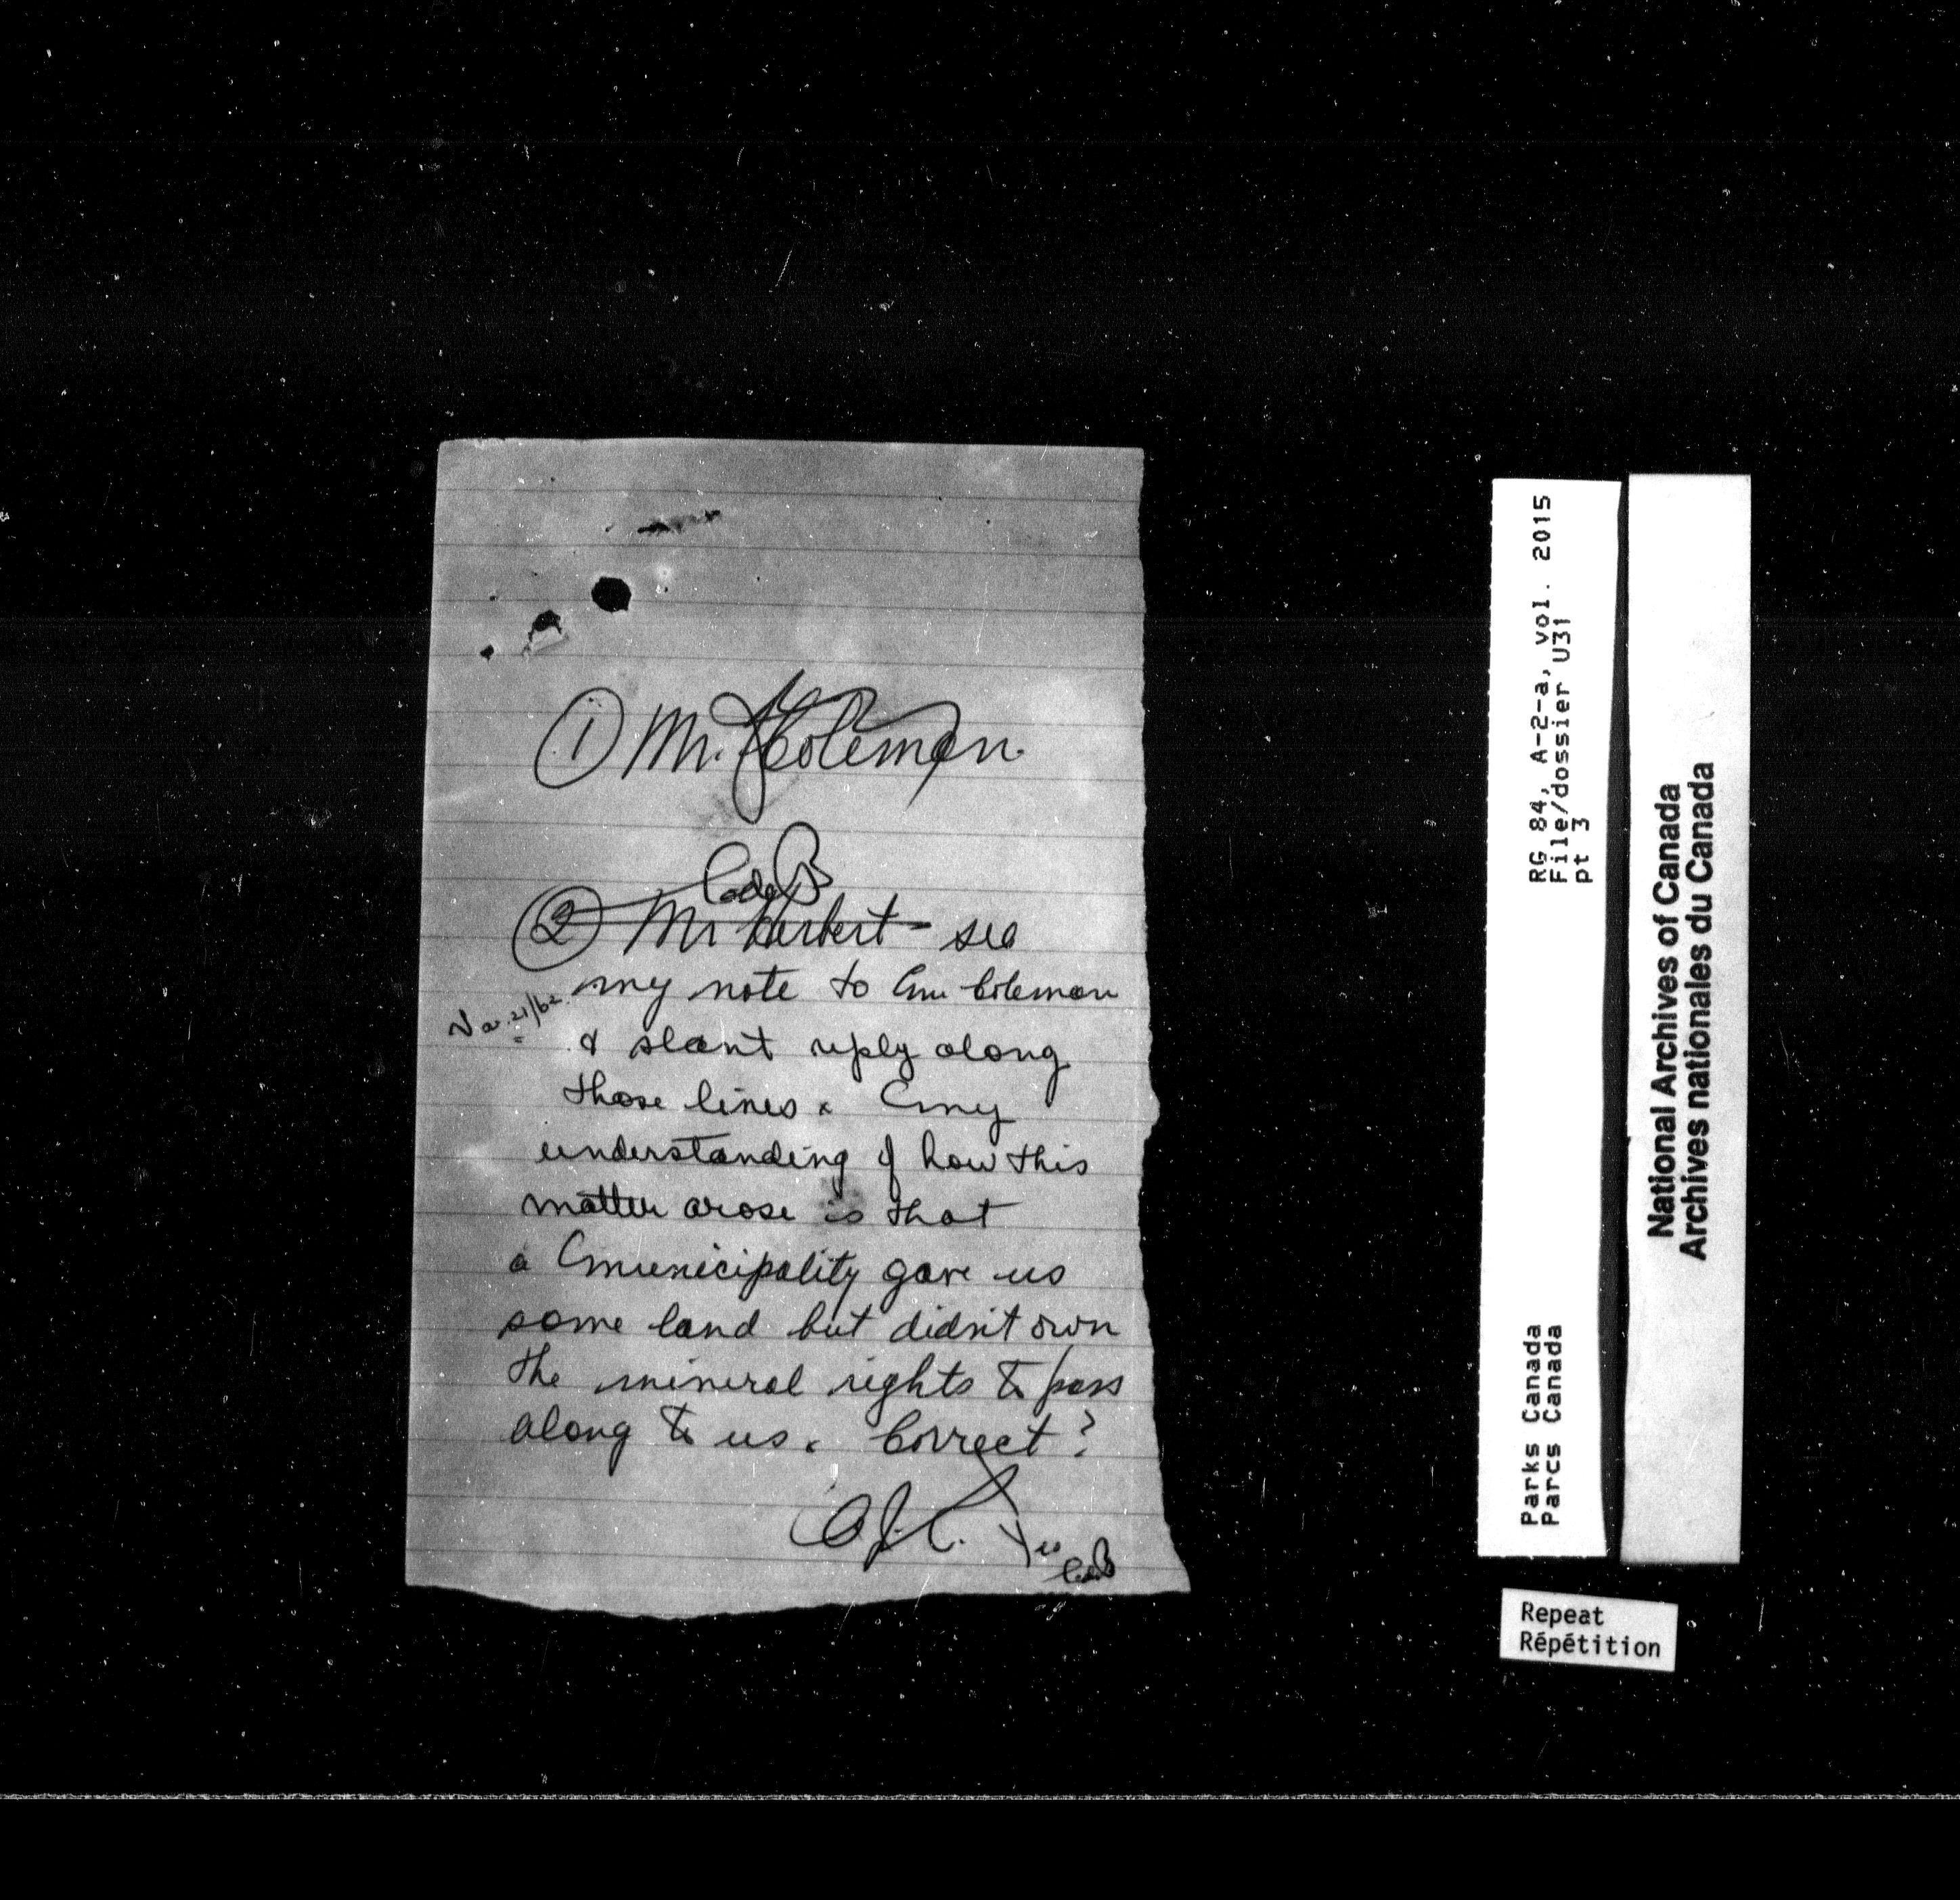 ① Mr. Coleman.
② Mr Herbert - see
my note to Mr Coleman
Nov. 21/62.
& slant reply along
those lines. My
understanding of how this
matter arose is that
a municipality gave us
some land but didn't own
the mineral rights to pass
along to us. Correct?
Yes
RG 84, A-2-a, vol. 2015
File/dossier U31
pt 3
Parks Canada
Parcs Canada
National Archives of Canada
Archives nationales du Canada
Repeat
Répétition